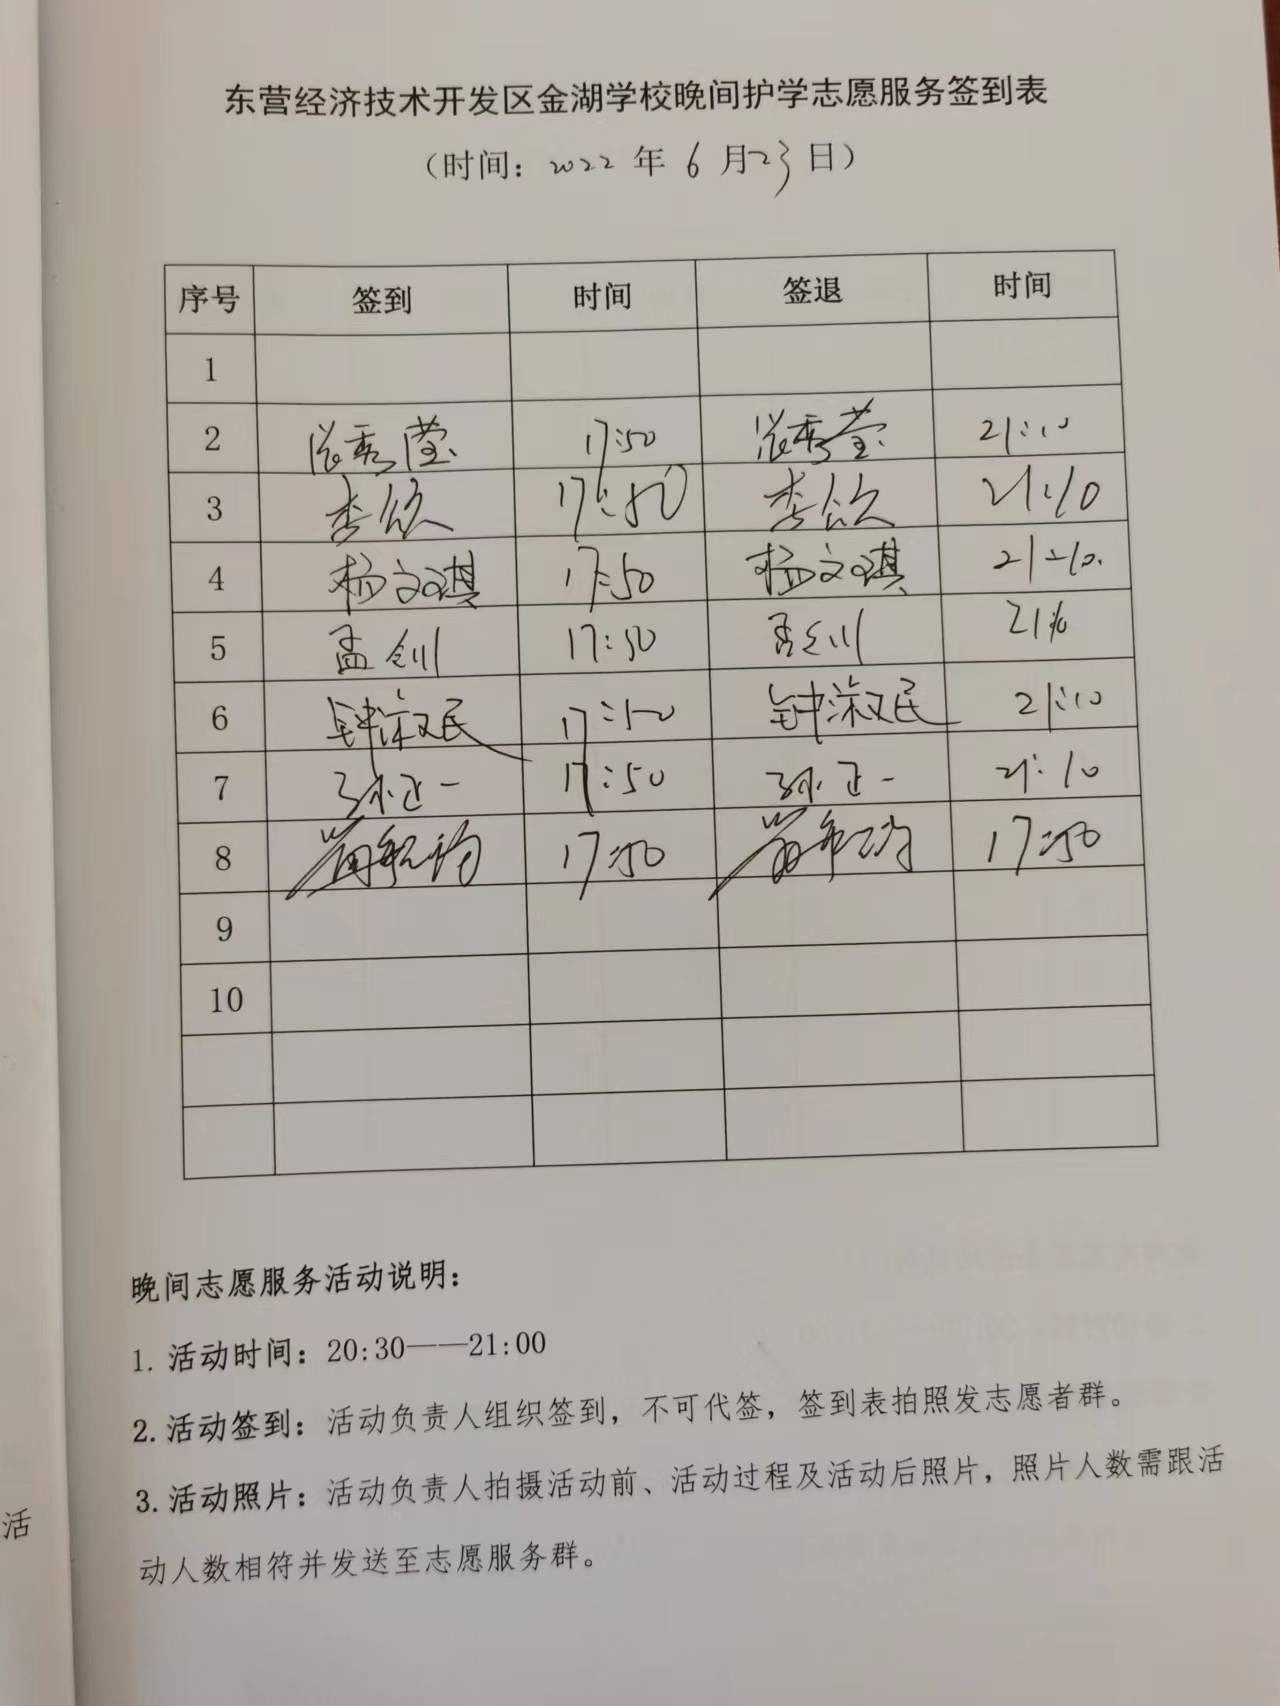 东营经济技术开发区金湖学校晚间护学志愿服务签到表
（时间：2022 年 6 月23 日）
序号 签到 时间 签退 时间
1
2 秀莹 17:50 秀莹 21:10
3 李欣 17:50 李欣 21:10
4 杨文琪 17:50 杨文琪 21:10.
5 孟剑 17:50 孟剑 21:10
6 钟淑民 17:50 钟淑民 21:10
7 孙正一 17:50 孙正一 21:10
8 17:50 17:50
9
10
晚间志愿服务活动说明：
1. 活动时间：20:30——21:00
2. 活动签到：活动负责人组织签到，不可代签，签到表拍照发志愿者群。
3. 活动照片：活动负责人拍摄活动前、活动过程及活动后照片，照片人数需跟活
动人数相符并发送至志愿服务群。
活